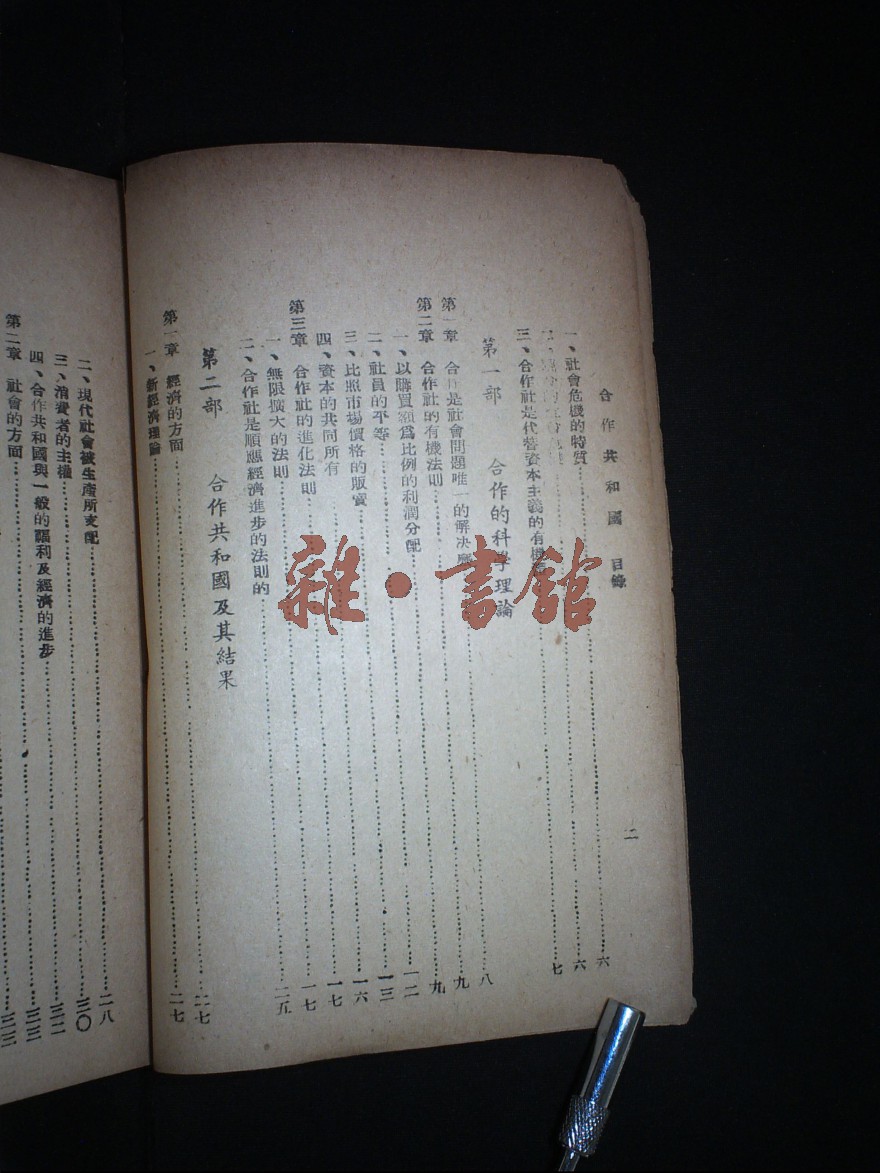 合作共和國 目錄
二
一、社會危機的特質……六
二、……六
三、合作社是代替資本主義的有機……七
第一部 合作的科學理論……八
第一章 合作是社會問題唯一的解決……九
第二章 合作社的有機法則……九
一、以購買額爲比例的利潤分配……一二
二、社員的平等……一三
三、比照市場價格的販賣……一六
四、資本的共同所有……一七
第三章 合作社的進化法則……一七
一、無限擴大的法則……二五
二、合作社是順應經濟進步的法則的
第二部 合作共和國及其結果……二七
第一章 經濟的方面……二七
一、新經濟理論
二、現代社會被生產所支配……二八
三、消費者的主權……三〇
四、合作共和國與一般的福利及經濟的進步……三二
第二章 社會的方面……三三
雜·書館